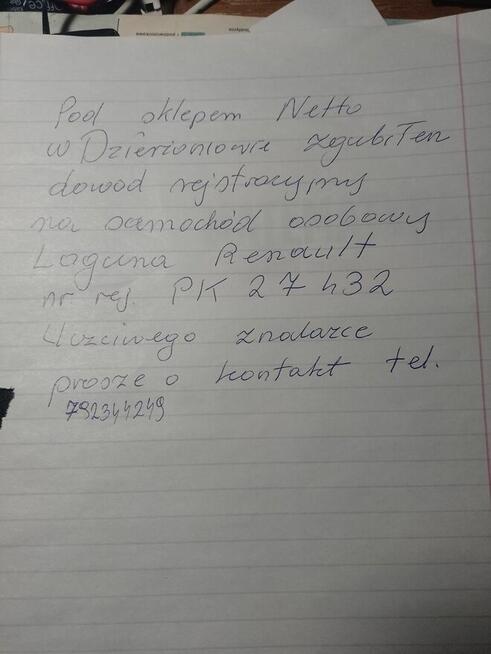 Pod sklepem Netto
w Dzierżoniowie zgubiłem
dowód rejstracyjny
na samochód osobowy
Laguna Renault
nr rej. PK 27432
Uczciwego znalazce
prosze o kontakt tel.
792344249